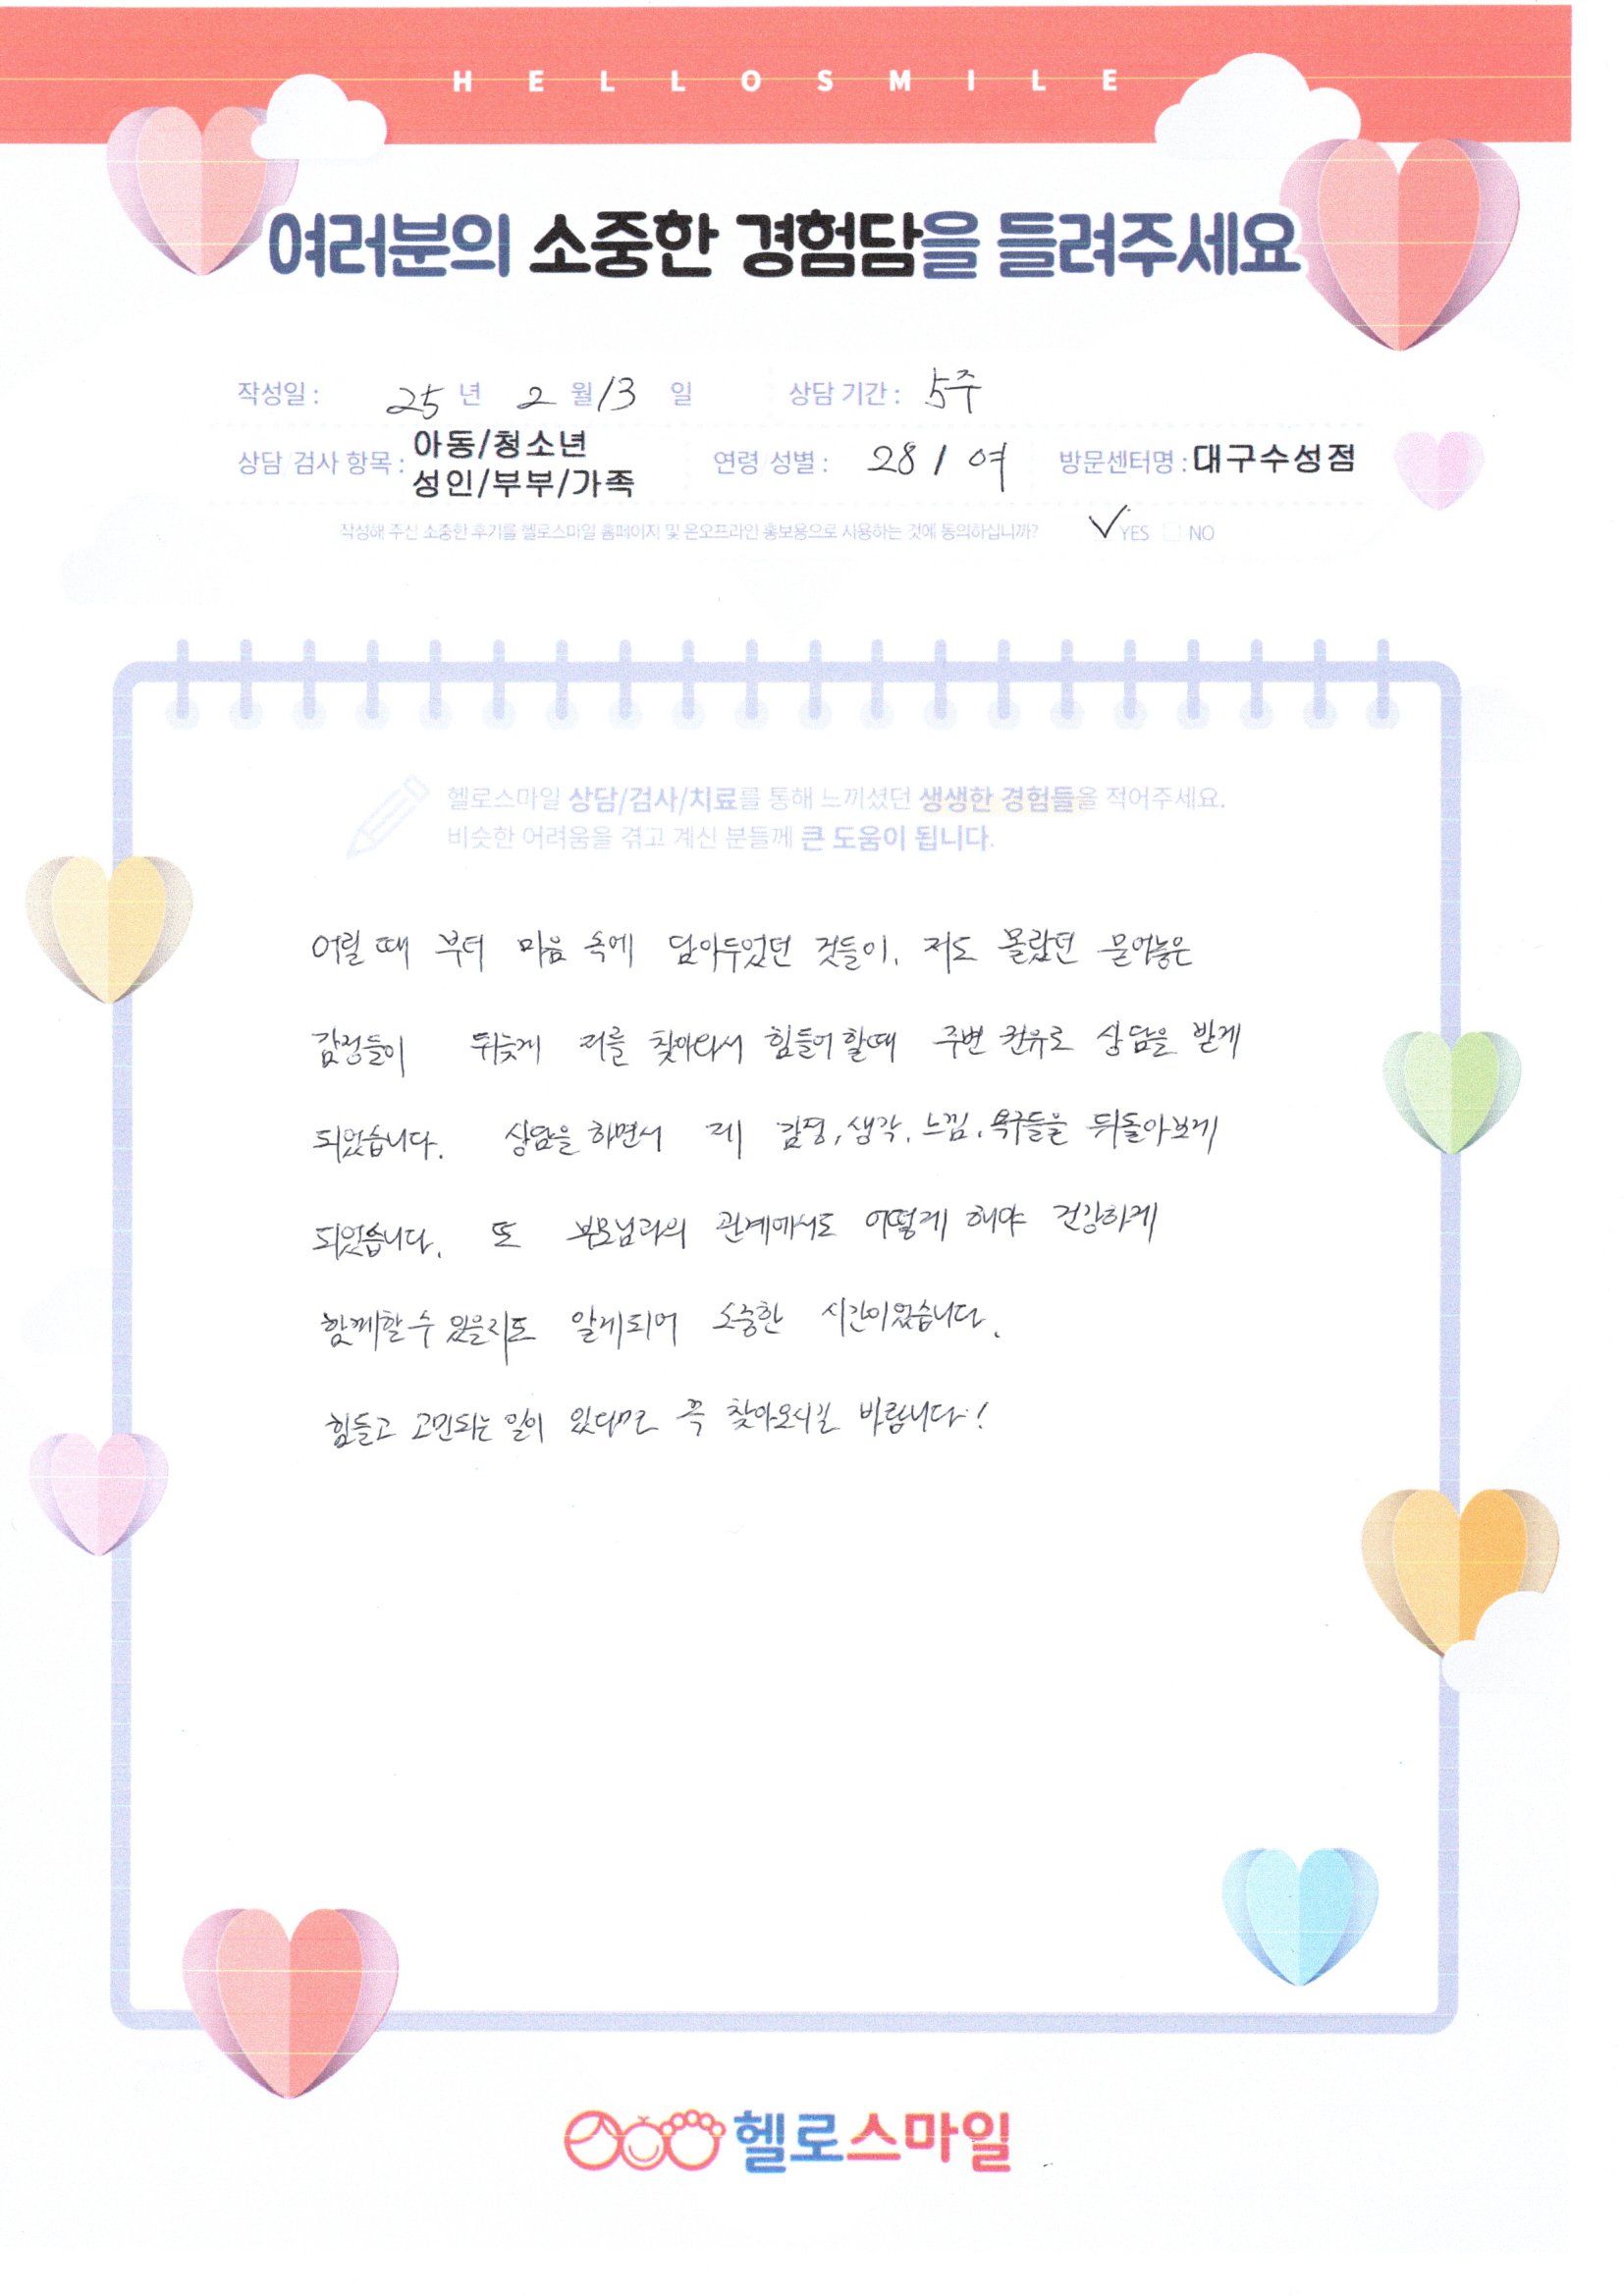 HELLOSMILE
여러분의 소중한 경험담을 들려주세요
작성일 : 25 년 2 월 13 일 상담 기간 : 5주
상담 검사 항목 : 아동/청소년
성인/부부/가족
연령 성별 : 28 / 여 방문센터명 : 대구수성점
작성해 주신 소중한 후기를 헬로스마일 홈페이지 및 온오프라인 홍보용으로 사용하는 것에 동의하십니까? ✓YES □ NO
헬로스마일 상담/검사/치료를 통해 느끼셨던 생생한 경험들을 적어주세요.
비슷한 어려움을 겪고 계신 분들께 큰 도움이 됩니다.
어릴 때 부터 마음 속에 담아두었던 것들이, 저도 몰랐던 묻어놓은
감정들이 뒤늦게 저를 찾아와서 힘들어 할때 주변 권유로 상담을 받게
되었습니다. 상담을 하면서 제 감정, 생각, 느낌, 욕구들을 뒤돌아보게
되었습니다. 또 부모님과의 관계에서도 어떻게 해야 건강하게
함께할 수 있을지도 알게되어 소중한 시간이었습니다.
힘들고 고민되는 일이 있다면 꼭 찾아오시길 바랍니다!
헬로스마일